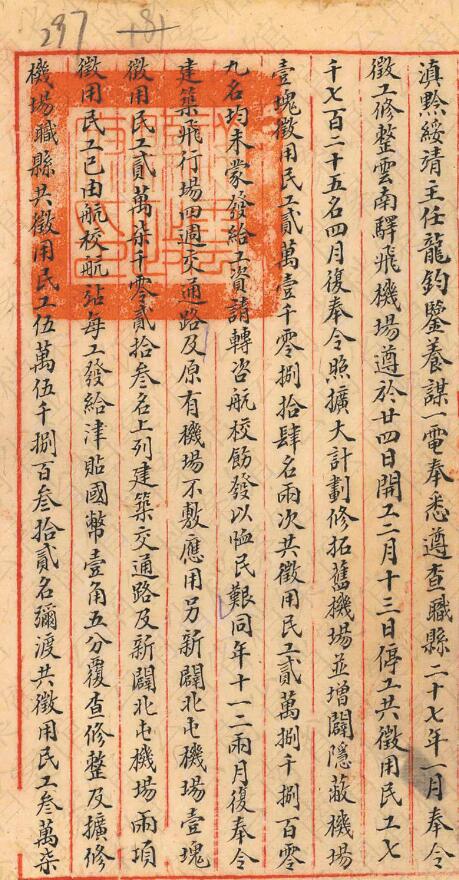 297 181
滇黔綏靖主任龍鈞鑒養謀一電奉悉遵查職縣二十七年一月奉令
徵工修整雲南驛飛機場遵於廿四日開工二月十三日停工共徵用民工七
千七百二十五名四月復奉令照擴大計劃修拓舊機場並增闢隱蔽機場
壹塊徵用民工貳萬壹千零捌拾肆名兩次共徵用民工貳萬捌千捌百零
九名均未蒙發給工資請轉咨航校飭發以恤民艱同年十一二兩月復奉令
建築飛行場四週交通路及原有機場不敷應用另新闢北屯機場壹塊
徵用民工貳萬柒千零貳拾叁名上列建築交通路及新闢北屯機場兩項
徵用民工已由航校航站每工發給津貼國幣壹角五分覆查修整及擴修
機場職縣共徵用民工伍萬伍千捌百叁拾貳名彌渡共徵用民工叁萬柒